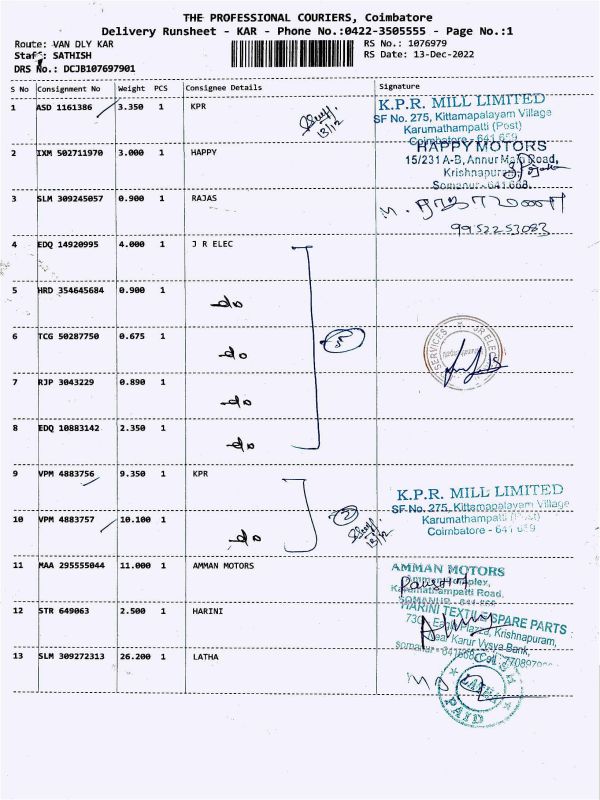 THE PROFESSIONAL COURIERS, Coimbatore
Delivery Runsheet - KAR - Phone No.:0422-3505555 - Page No.:1
Route: VAN DLY KAR RS No.: 1076979
Staff: SATHISH RS Date: 13-Dec-2022
DRS No.: DCJB107697901
S No Consignment No Weight PCS Consignee Details Signature
1 ASD 1161386 3.350 1 KPR 13/12
K.P.R. MILL LIMITED
SF No. 275, Kittamapalayam Village
Karumathampatti (Post)
Coimbatore - 641 659
2 IXM 502711970 3.000 1 HAPPY
HAPPY MOTORS
15/231 A-B, Annur Main Road,
Krishnapuram,
Somanur - 641 668.
3 SLM 309245057 0.900 1 RAJAS
9952253083
4 EDQ 14920995 4.000 1 J R ELEC
5 HRD 354645684 0.900 1 do
6 TCG 50287750 0.675 1 do
SERVICES JR ELEC
7 RJP 3043229 0.890 1 do
8 EDQ 10883142 2.350 1 do
9 VPM 4883756 9.350 1 KPR
K.P.R. MILL LIMITED
SF No. 275, Kittamapalayam Village
Karumathampatti (Post)
Coimbatore - 641 659
10 VPM 4883757 10.100 1 do 13/12
11 MAA 295555044 11.000 1 AMMAN MOTORS
AMMAN MOTORS
Karumathampatti Road,
SOMANUR - 641 668
12 STR 649063 2.500 1 HARINI
HARINI TEXTILE SPARE PARTS
Plaza, Krishnapuram,
Near Karur Vysya Bank,
somanur - 641668
13 SLM 309272313 26.200 1 LATHA
CASH
LATHA
PAID